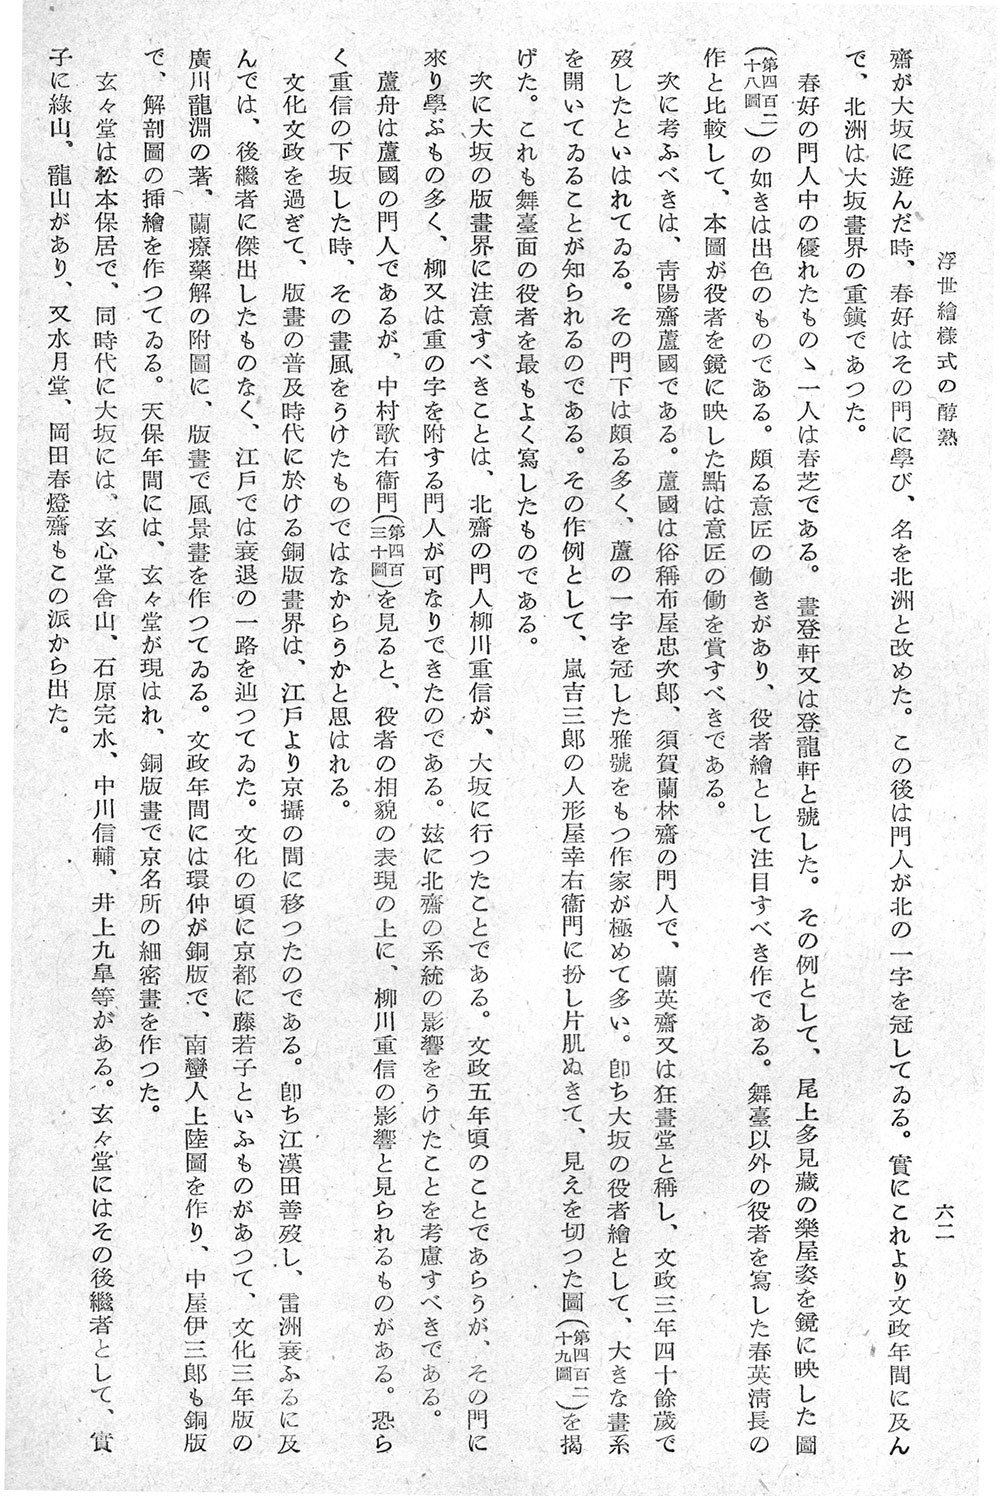 浮世繪樣式の醇熟
六二
齋が大坂に遊んだ時、春好はその門に學び、名を北洲と改めた。この後は門人が北の一字を冠してゐる。實にこれより文政年間に及ん
で、北洲は大坂畫界の重鎭であつた。
春好の門人中の優れたものゝ一人は春芝である。畫登軒又は登龍軒と號した。その例として、尾上多見藏の樂屋姿を鏡に映した圖
(第四百二十八圖)の如きは出色のものである。頗る意匠の働きがあり、役者繪として注目すべき作である。舞臺以外の役者を寫した春英淸長の
作と比較して、本圖が役者を鏡に映した點は意匠の働を賞すべきである。
次に考ふべきは、靑陽齋蘆國である。蘆國は俗稱布屋忠次郎、須賀蘭林齋の門人で、蘭英齋又は狂畫堂と稱し、文政三年四十餘歲で
歿したといはれてゐる。その門下は頗る多く、蘆の一字を冠した雅號をもつ作家が極めて多い。卽ち大坂の役者繪として、大きな畫系
を開いてゐることが知られるのである。その作例として、嵐吉三郎の人形屋幸右衞門に扮し片肌ぬきて、見えを切つた圖(第四百二十九圖)を揭
げた。これも舞臺面の役者を最もよく寫したものである。
次に大坂の版畫界に注意すべきことは、北齋の門人柳川重信が、大坂に行つたことである。文政五年頃のことであらうが、その門に
來り學ぶもの多く、柳又は重の字を附する門人が可なりできたのである。玆に北齋の系統の影響をうけたことを考慮すべきである。
蘆舟は蘆國の門人であるが、中村歌右衞門(第四百三十圖)を見ると、役者の相貌の表現の上に、柳川重信の影響と見られるものがある。恐ら
く重信の下坂した時、その畫風をうけたものではなからうかと思はれる。
文化文政を過ぎて、版畫の普及時代に於ける銅版畫界は、江戶より京攝の間に移つたのである。卽ち江漢田善歿し、雷洲衰ふるに及
んでは、後繼者に傑出したものなく、江戶では衰退の一路を辿つてゐた。文化の頃に京都に藤若子といふものがあつて、文化三年版の
廣川龍淵の著、蘭療藥解の附圖に、版畫で風景畫を作つてゐる。文政年間には環仲が銅版で、南蠻人上陸圖を作り、中屋伊三郎も銅版
で、解剖圖の揷繪を作つてゐる。天保年間には、玄々堂が現はれ、銅版畫で京名所の細密畫を作つた。
玄々堂は松本保居で、同時代に大坂には、玄心堂舍山、石原完水、中川信輔、井上九皐等がある。玄々堂にはその後繼者として、實
子に綠山、龍山があり、又水月堂、岡田春燈齋もこの派から出た。